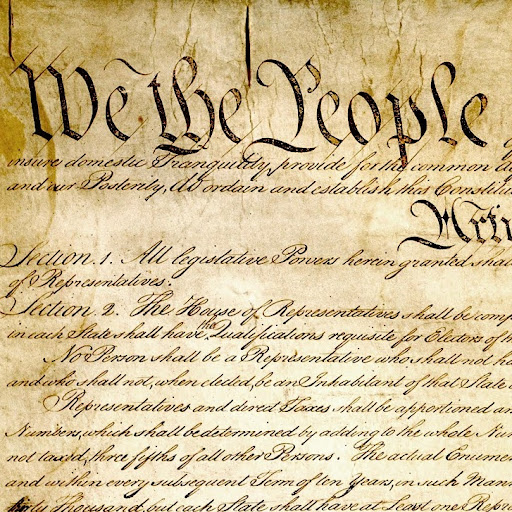 We the People
insure domestic Tranquility, provide for the common
and our Posterity, do ordain and establish this Constitu
Arti
Section. 1. All legislative Powers herein granted shal
of Representatives.
Section. 2. The House of Representatives shall be comp
in each State shall have the Qualifications requisite for Electors of th
No Person shall be a Representative who shall not ha
and who shall not, when elected, be an Inhabitant of that State
Representatives and direct Taxes shall be apportioned am
Numbers, which shall be determined by adding to the whole Num
not taxed, three fifths of all other Persons. The actual Enume
and within every subsequent Term of ten Years, in such Mann
thirty Thousand, but each State shall have at Least one Repre